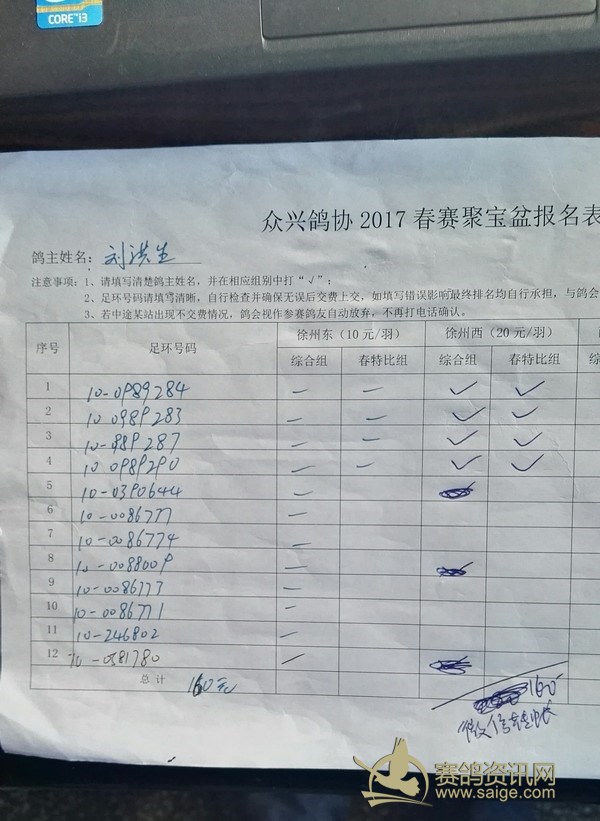 CORE™i3
众兴鸽协 2017 春赛聚宝盆报名表
鸽主姓名: 刘洪生
注意事项: 1、请填写清楚鸽主姓名, 并在相应组别中打“√”;
2、足环号码请填写清晰, 自行检查并确保无误后交费上交, 如填写错误影响最终排名均自行承担, 与鸽会
3、若中途某站出现不交费情况, 鸽会视作参赛鸽友自动放弃, 不再打电话确认。
序号 足环号码 徐州东(10元/羽) 徐州西(20元/羽)
综合组 春特比组 综合组 春特比组
1 10-0989284 — — √ √
2 10 0989283 — — √ √
3 10-989287 — — √ √
4 10 0989290 — — √ √
5 10-0390644 —
6 10-0086777 —
7 10-0086774 —
8 10-0088009 —
9 10-0086773 —
10 10-0086771 —
11 10-246802 —
12 10-0381780 —
总计 160元
160
微信转帐
赛鸽资讯网
www.saige.com